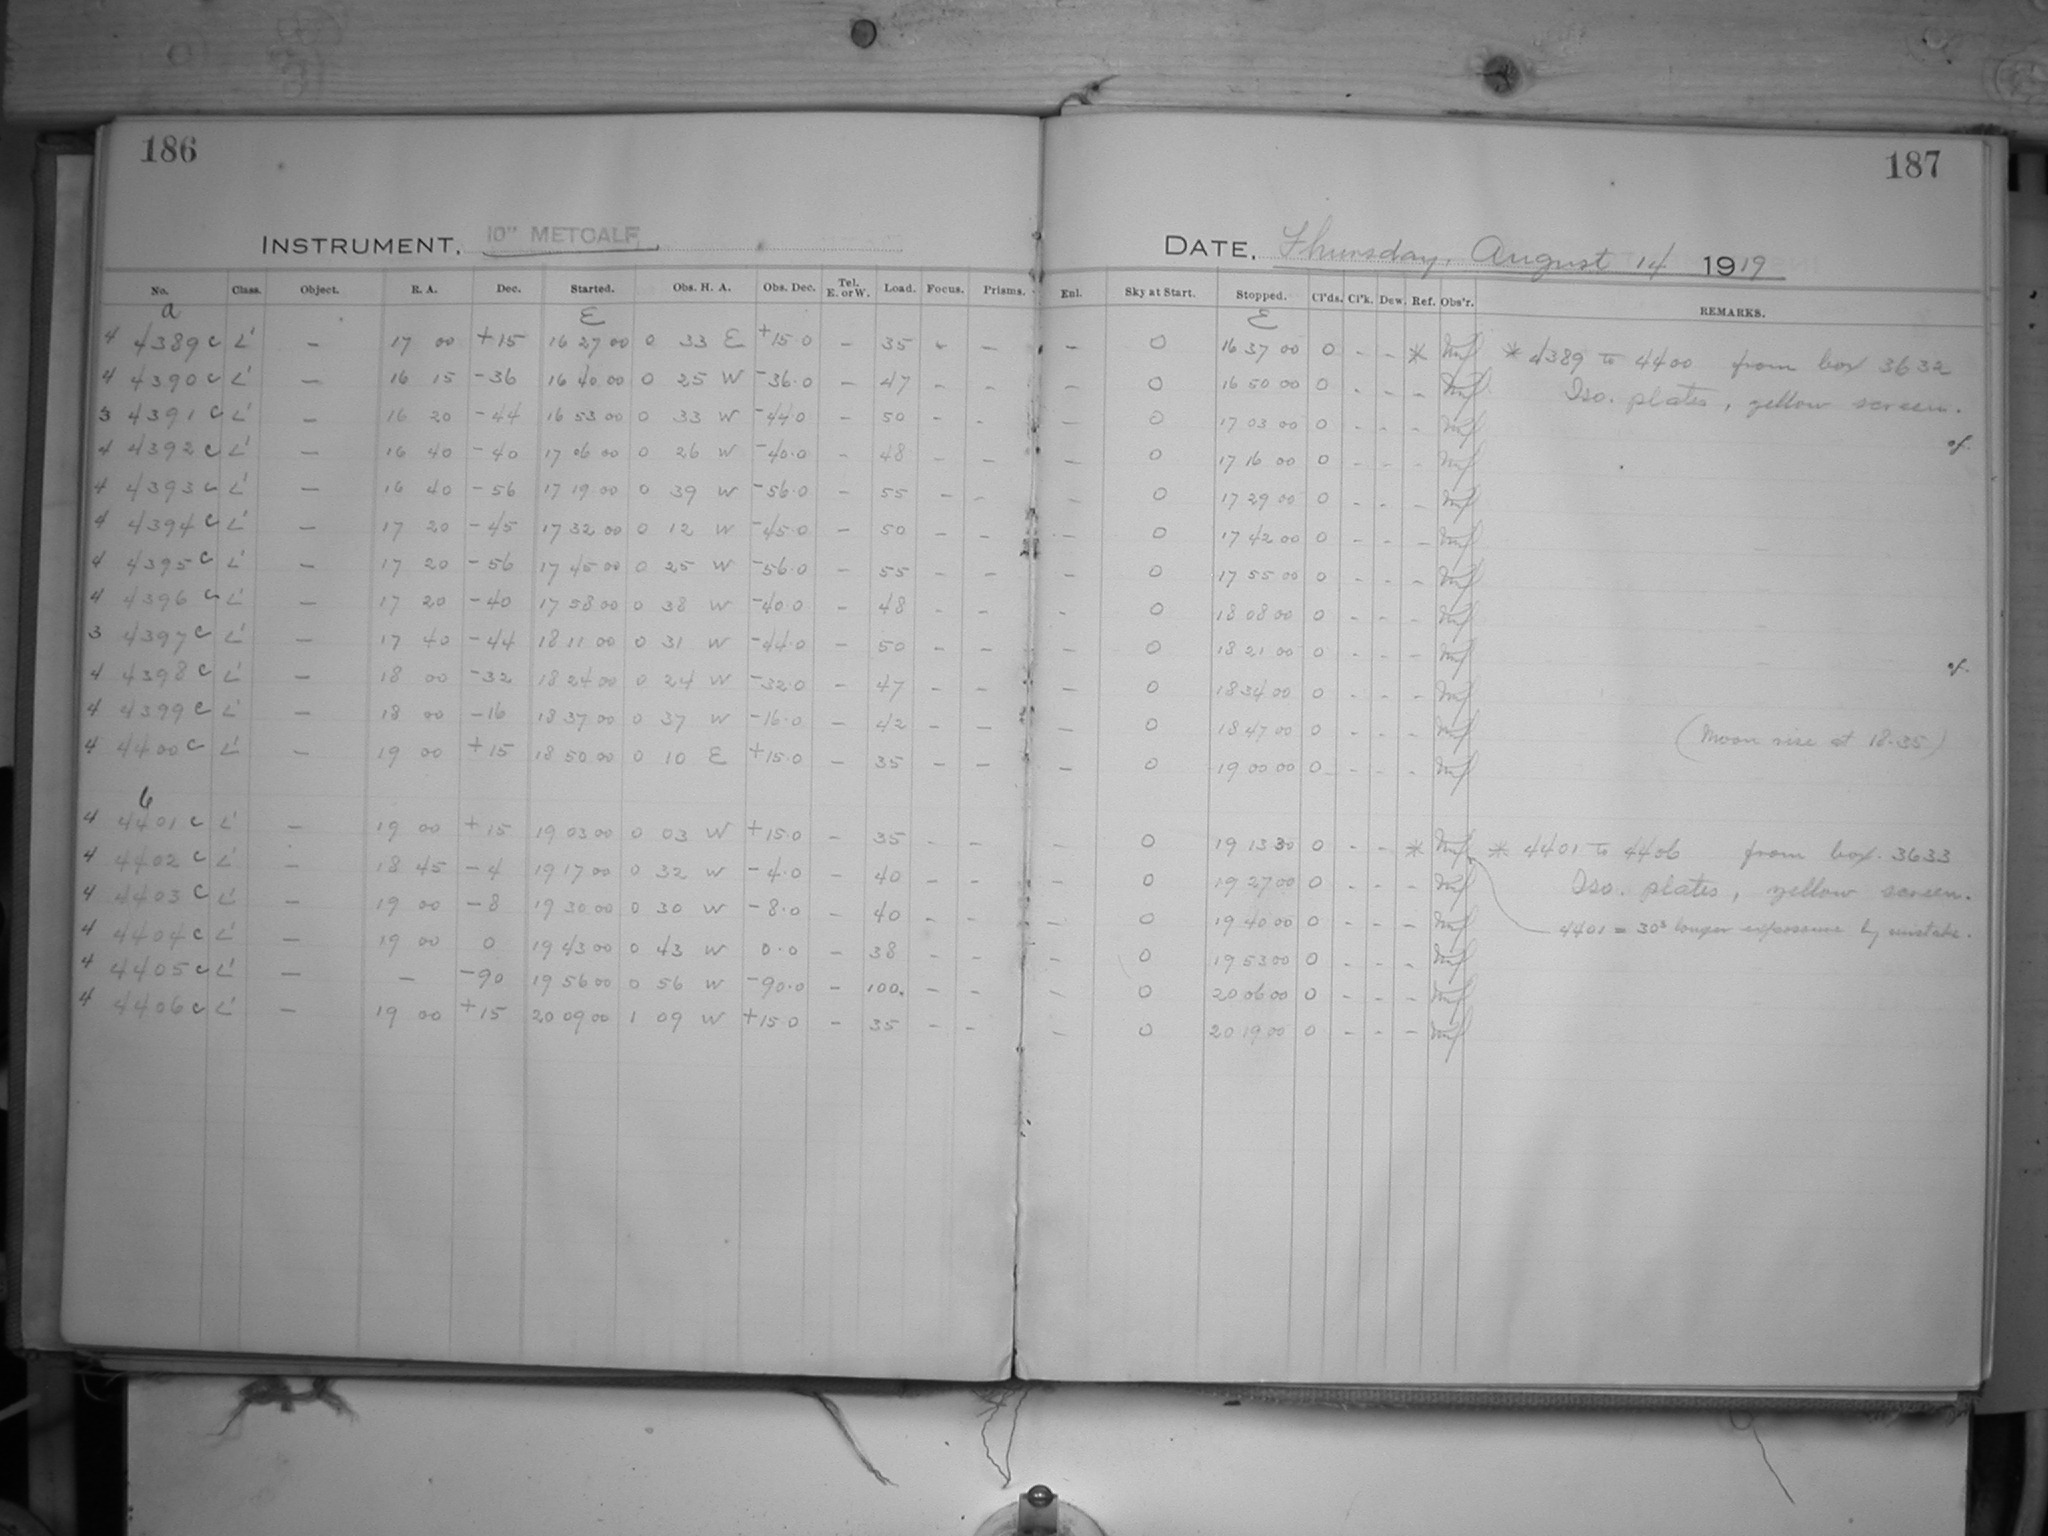 186
187
INSTRUMENT. 10" METCALF
DATE. Thursday, August 14 1919
No. Class. Object. R. A. Dec. Started. Obs. H. A. Obs. Dec. Tel. E. or W. Load. Focus. Prisms. Enl. Sky at Start. Stopped. Cl'ds. Cl'k. Dew. Ref. Obs'r. REMARKS.
a E E
4 4389 c L' – 17 00 +15 16 27 00 0 33 E +15.0 – 35 – – – 0 16 37 00 0 - - * * 4389 to 4400 from box 3632
4 4390 c L' – 16 15 -36 16 40 00 0 25 W -36.0 – 47 - - – 0 16 50 00 0 - - - Iso. plates, yellow screen.
3 4391 c L' – 16 20 -44 16 53 00 0 33 W -44.0 – 50 - - – 0 17 03 00 0 - - -
4 4392 c L' – 16 40 -40 17 06 00 0 26 W -40.0 - 48 - – – 0 17 16 00 0 - - -
4 4393 c L' – 16 40 -56 17 19 00 0 39 W -56.0 - 55 - - – 0 17 29 00 0 - - -
4 4394 c L' – 17 20 -45 17 32 00 0 12 W -45.0 – 50 - - - 0 17 42 00 0 - - -
4 4395 c L' – 17 20 -56 17 45 00 0 25 W -56.0 – 55 - – – 0 17 55 00 0 - - -
4 4396 c L' – 17 20 -40 17 58 00 0 38 W -40.0 – 48 - - - 0 18 08 00 0 - - -
3 4397 c L' – 17 40 -44 18 11 00 0 31 W -44.0 – 50 - – – 0 18 21 00 0 - - -
4 4398 c L' – 18 00 -32 18 24 00 0 24 W -32.0 – 47 - – – 0 18 34 00 0 - - -
4 4399 c L' – 18 00 -16 18 37 00 0 37 W -16.0 – 42 - – – 0 18 47 00 0 - - - (Moon rise at 18.35)
4 4400 c L' – 19 00 +15 18 50 00 0 10 E +15.0 – 35 - – – 0 19 00 00 0 - - -
b
4 4401 c L' – 19 00 +15 19 03 00 0 03 W +15.0 – 35 - - – 0 19 13 30 0 - - * * 4401 to 4406 from box 3633
4 4402 c L' – 18 45 -4 19 17 00 0 32 W -4.0 – 40 - - – 0 19 27 00 0 - - - Iso. plates, yellow screen.
4 4403 c L' – 19 00 -8 19 30 00 0 30 W -8.0 - 40 - - – 0 19 40 00 0 - - - 4401 = 30s longer exposure by mistake.
4 4404 c L' – 19 00 0 19 43 00 0 43 W 0.0 – 38 - - – 0 19 53 00 0 - - -
4 4405 c L' – – -90 19 56 00 0 56 W -90.0 – 100. - - – 0 20 06 00 0 - - -
4 4406 c L' – 19 00 +15 20 09 00 1 09 W +15.0 – 35 - - – 0 20 19 00 0 - - -